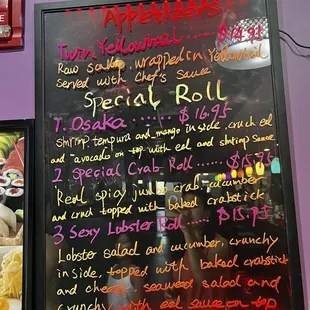 Appetizers
Twin Yellowtail ...... $14.95
Raw scallop wrapped in Yellowtail
served with Chef's Sauce
Special Roll
1. Osaka ....... $16.95
Shrimp tempura and mango inside, crunch eel
and avocado on top with eel and shrimp Sauce
2 Special Crab Roll ...... $15.95
Real spicy jumbo crab, cucumber
and crunch topped with baked crabstick
3 Sexy Lobster Roll ..... $15.95
Lobster salad and cucumber, crunchy
inside, topped with baked crabstick
and cheese, seaweed salad and
crunchy with eel sauce on top